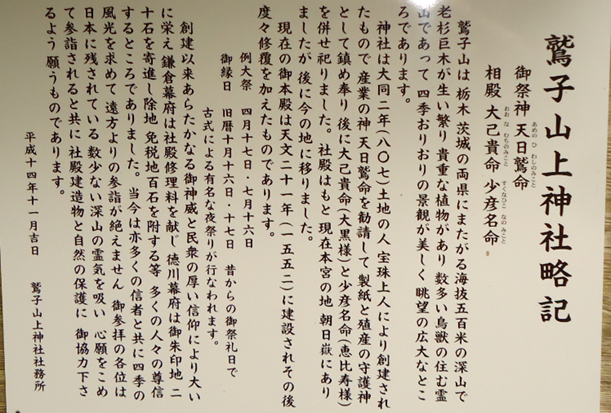 鷲子山上神社略記
御祭神 天日鷲命
あめの ひ わしのみこと
相殿 大己貴命 少彦名命
おお な むちのみこと すくなひこ なのみこと
鷲子山は 栃木 茨城の両県にまたがる海抜五百米の深山で
老杉巨木が生い繁り 貴重な植物があり 数多い鳥獣の住む霊
山であって 四季おりおりの景観が美しく 眺望の広大なとこ
ろであります。
神社は大同二年(八〇七)土地の人 宝珠上人により創建され
たもので 産業の神 天日鷲命を勧請して 製紙と殖産の守護神
として鎮め奉り 後に大己貴命(大黒様)と少彦名命(恵比寿様)
を併せ祀りました。社殿はもと 現在本宮の地 朝日嶽にあり
ましたが 後に今の地に移りました。
現在の御本殿は天文二十一年(一五五二)に建設されその後
度々修復を加えたものであります。
例大祭 四月十七日・七月十六日
御縁日 旧暦十月十六日・十七日 昔からの御祭礼日で
古式による有名な夜祭りが行なわれます。
創建以来あらたかなる御神威と民衆の厚い信仰により大い
に栄え 鎌倉幕府は社殿修理料を献じ 徳川幕府は御朱印地 二
十石を寄進し除地 免税地百石を附する等 多くの人々の尊信
するところでありました。当今は亦多くの信者と共に四季の
風光を求めて 遠方よりの参詣が絶えません 御参拝の各位は
日本に残されている 数少ない深山の霊気を吸い 心願をこめ
て参詣されると共に 社殿建造物と自然の保護に 御協力下さ
るよう 願うものであります。
平成十四年十一月吉日
鷲子山上神社社務所